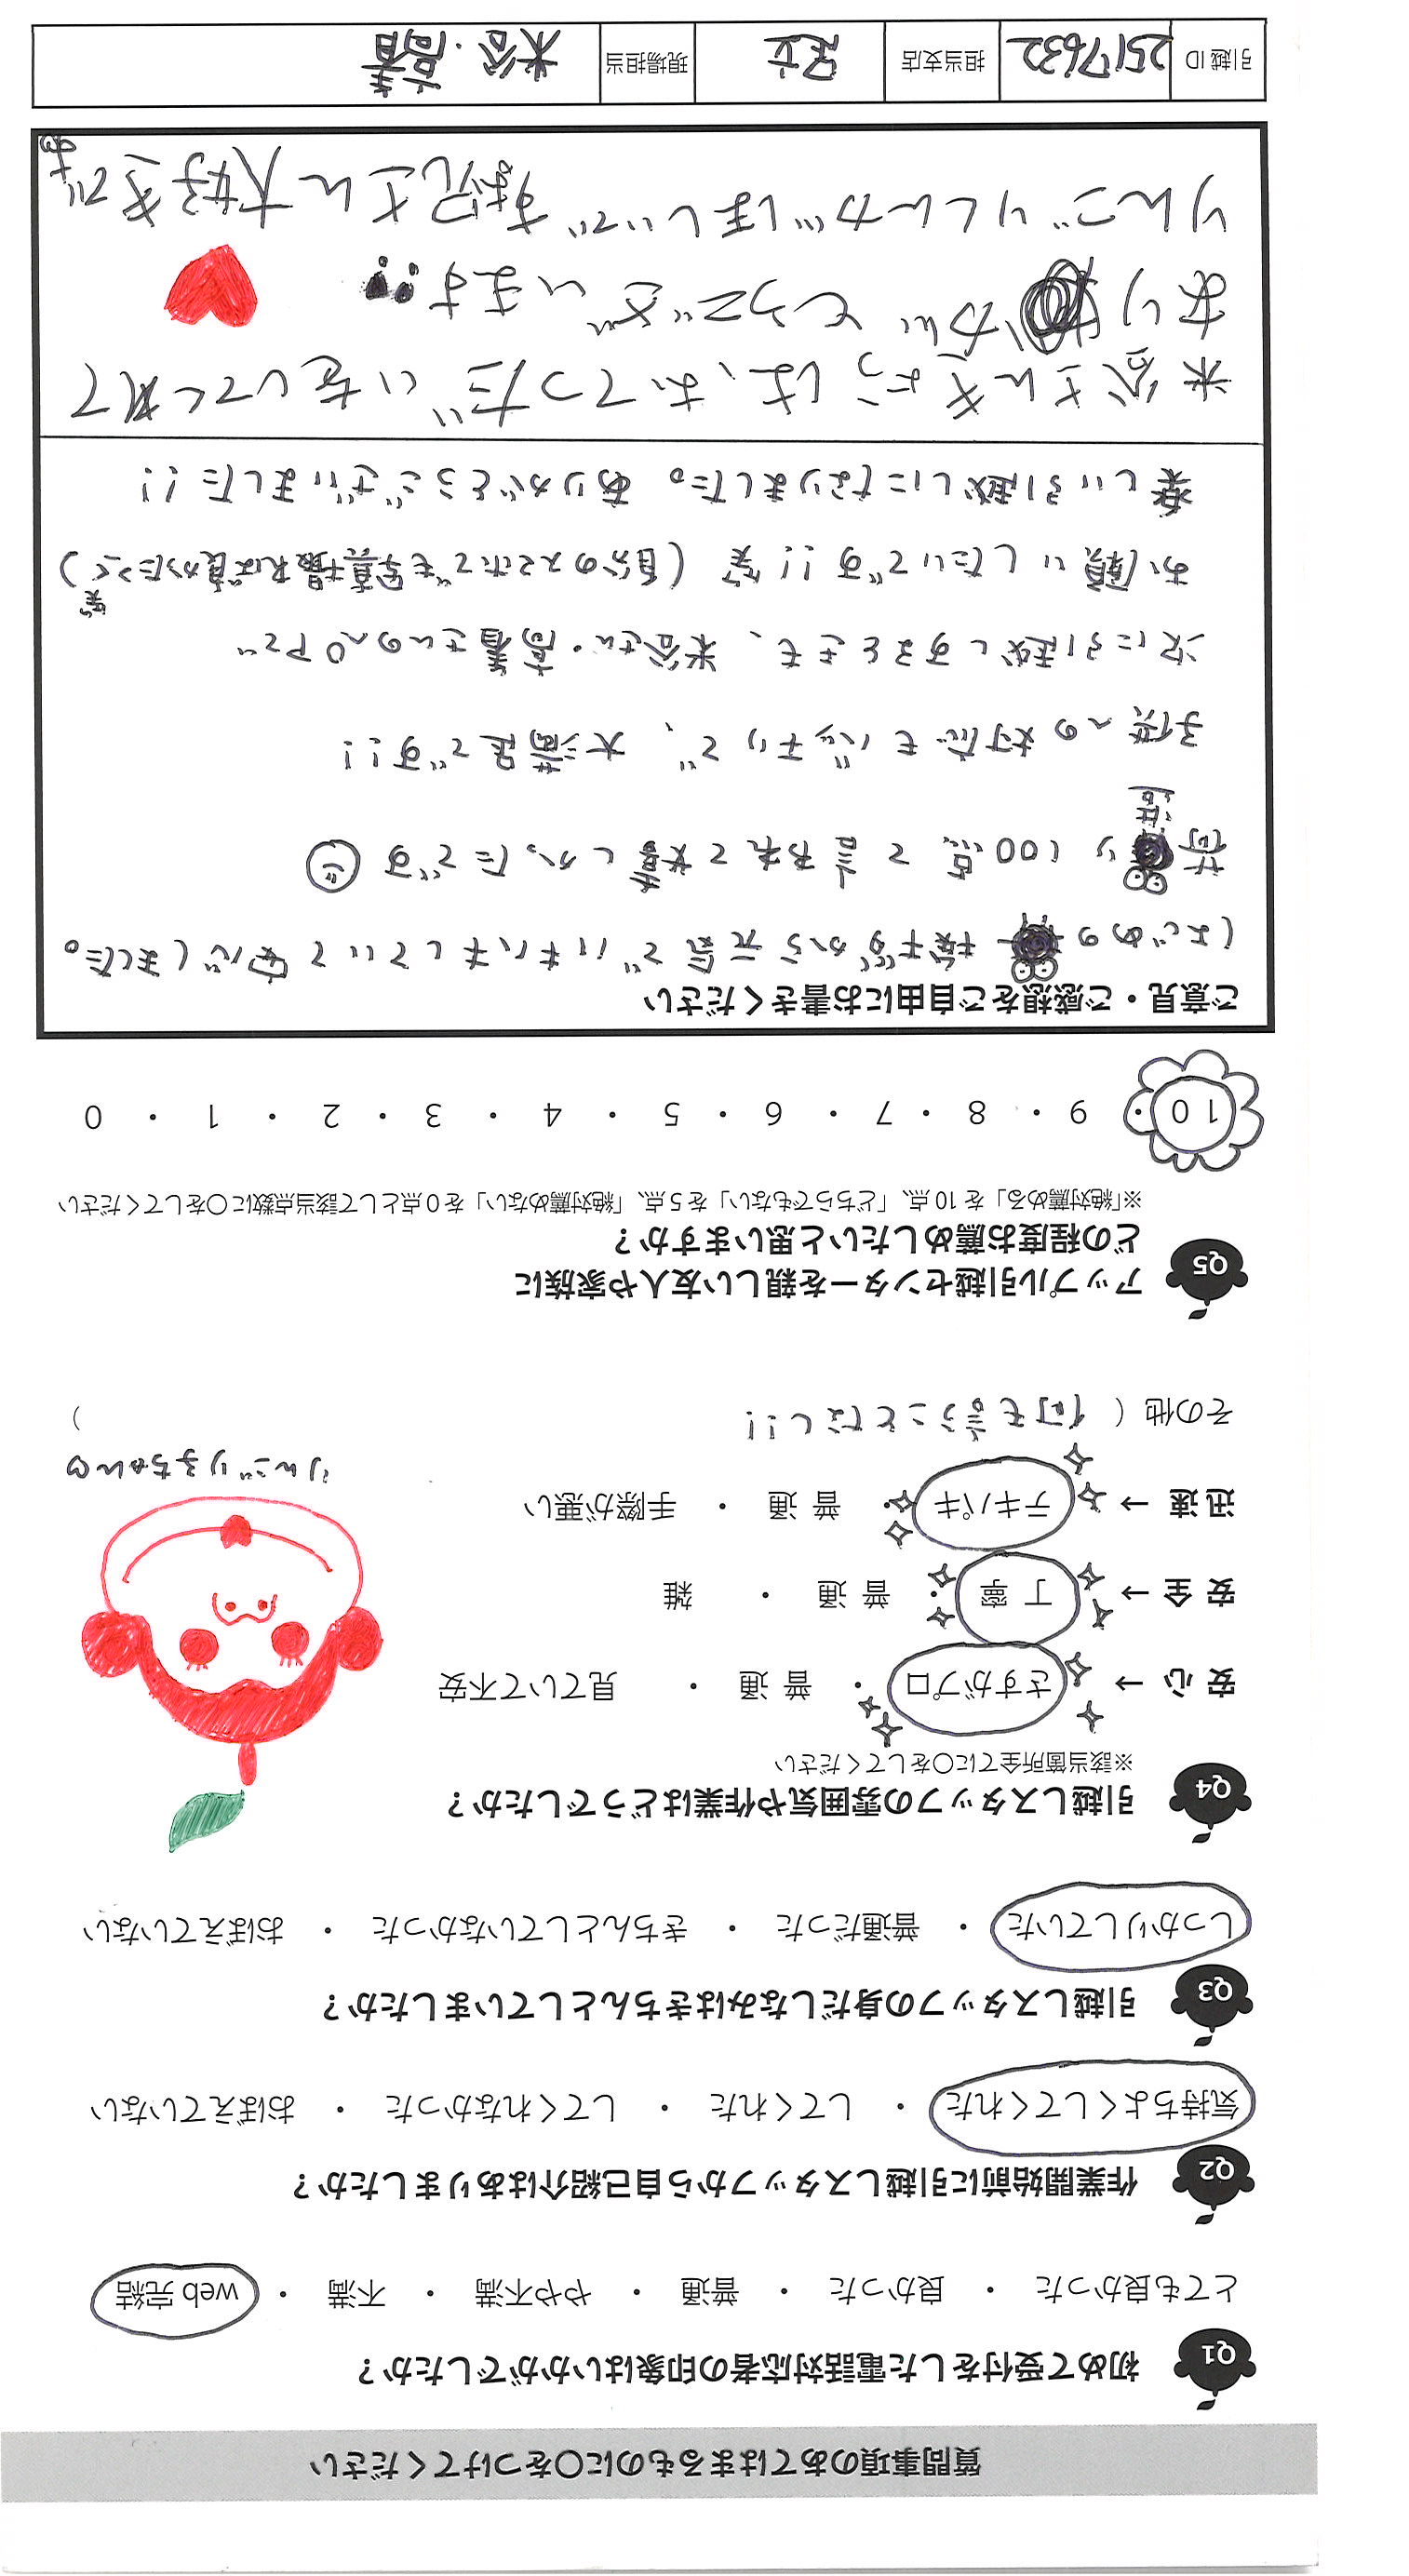 質問事項のあてはまるものに〇をつけてください
Q1 初めて受付をした電話対応者の印象はいかがでしたか？
とても良かった ・ 良かった ・ 普通 ・ やや不満 ・ 不満 ・ web 完結
Q2 作業開始前に引越しスタッフから自己紹介はありましたか？
気持ちよくしてくれた ・ してくれた ・ してくれなかった ・ おぼえていない
Q3 引越しスタッフの身だしなみはきちんとしていましたか？
しっかりしていた ・ 普通だった ・ きちんとしていなかった ・ おぼえていない
Q4 引越しスタッフの雰囲気や作業はどうでしたか？
※該当箇所全てに〇をしてください
安心 → さすがプロ ・ 普通 ・ 見ていて不安
安全 → 丁寧 ・ 普通 ・ 雑
迅速 → テキパキ ・ 普通 ・ 手際が悪い
りんごり子ちゃん♡
その他（ 何も言うことなし!! ）
Q5 アップル引越センターを親しい友人や家族に
どの程度お薦めしたいと思いますか？
※「絶対薦める」を 10 点、「どちらでもない」を 5 点、「絶対薦めない」を 0 点として該当点数に〇をしてください
10 ・ 9 ・ 8 ・ 7 ・ 6 ・ 5 ・ 4 ・ 3 ・ 2 ・ 1 ・ 0
ご意見・ご感想をご自由にお書きください
はじめの挨拶から元気でハキハキしていて安心しました。
荷造り 100点 と言われて嬉しかったです
子供への対応もバッチリで、大満足です!!
次に引越しするときも、米谷さん・高着さんのペアで
お願いしたいです!!笑（自分のスマホでも写真撮れば良かった〜笑）
楽しい引越しになりました。ありがとうございました!!
米谷さんきょうは、おてつだいをしてくれて
ありがとうございます
りんごりくんがほしいです。お兄さん大好きです
引越 ID 2517632 担当支店 足立 現場担当 米谷・高着